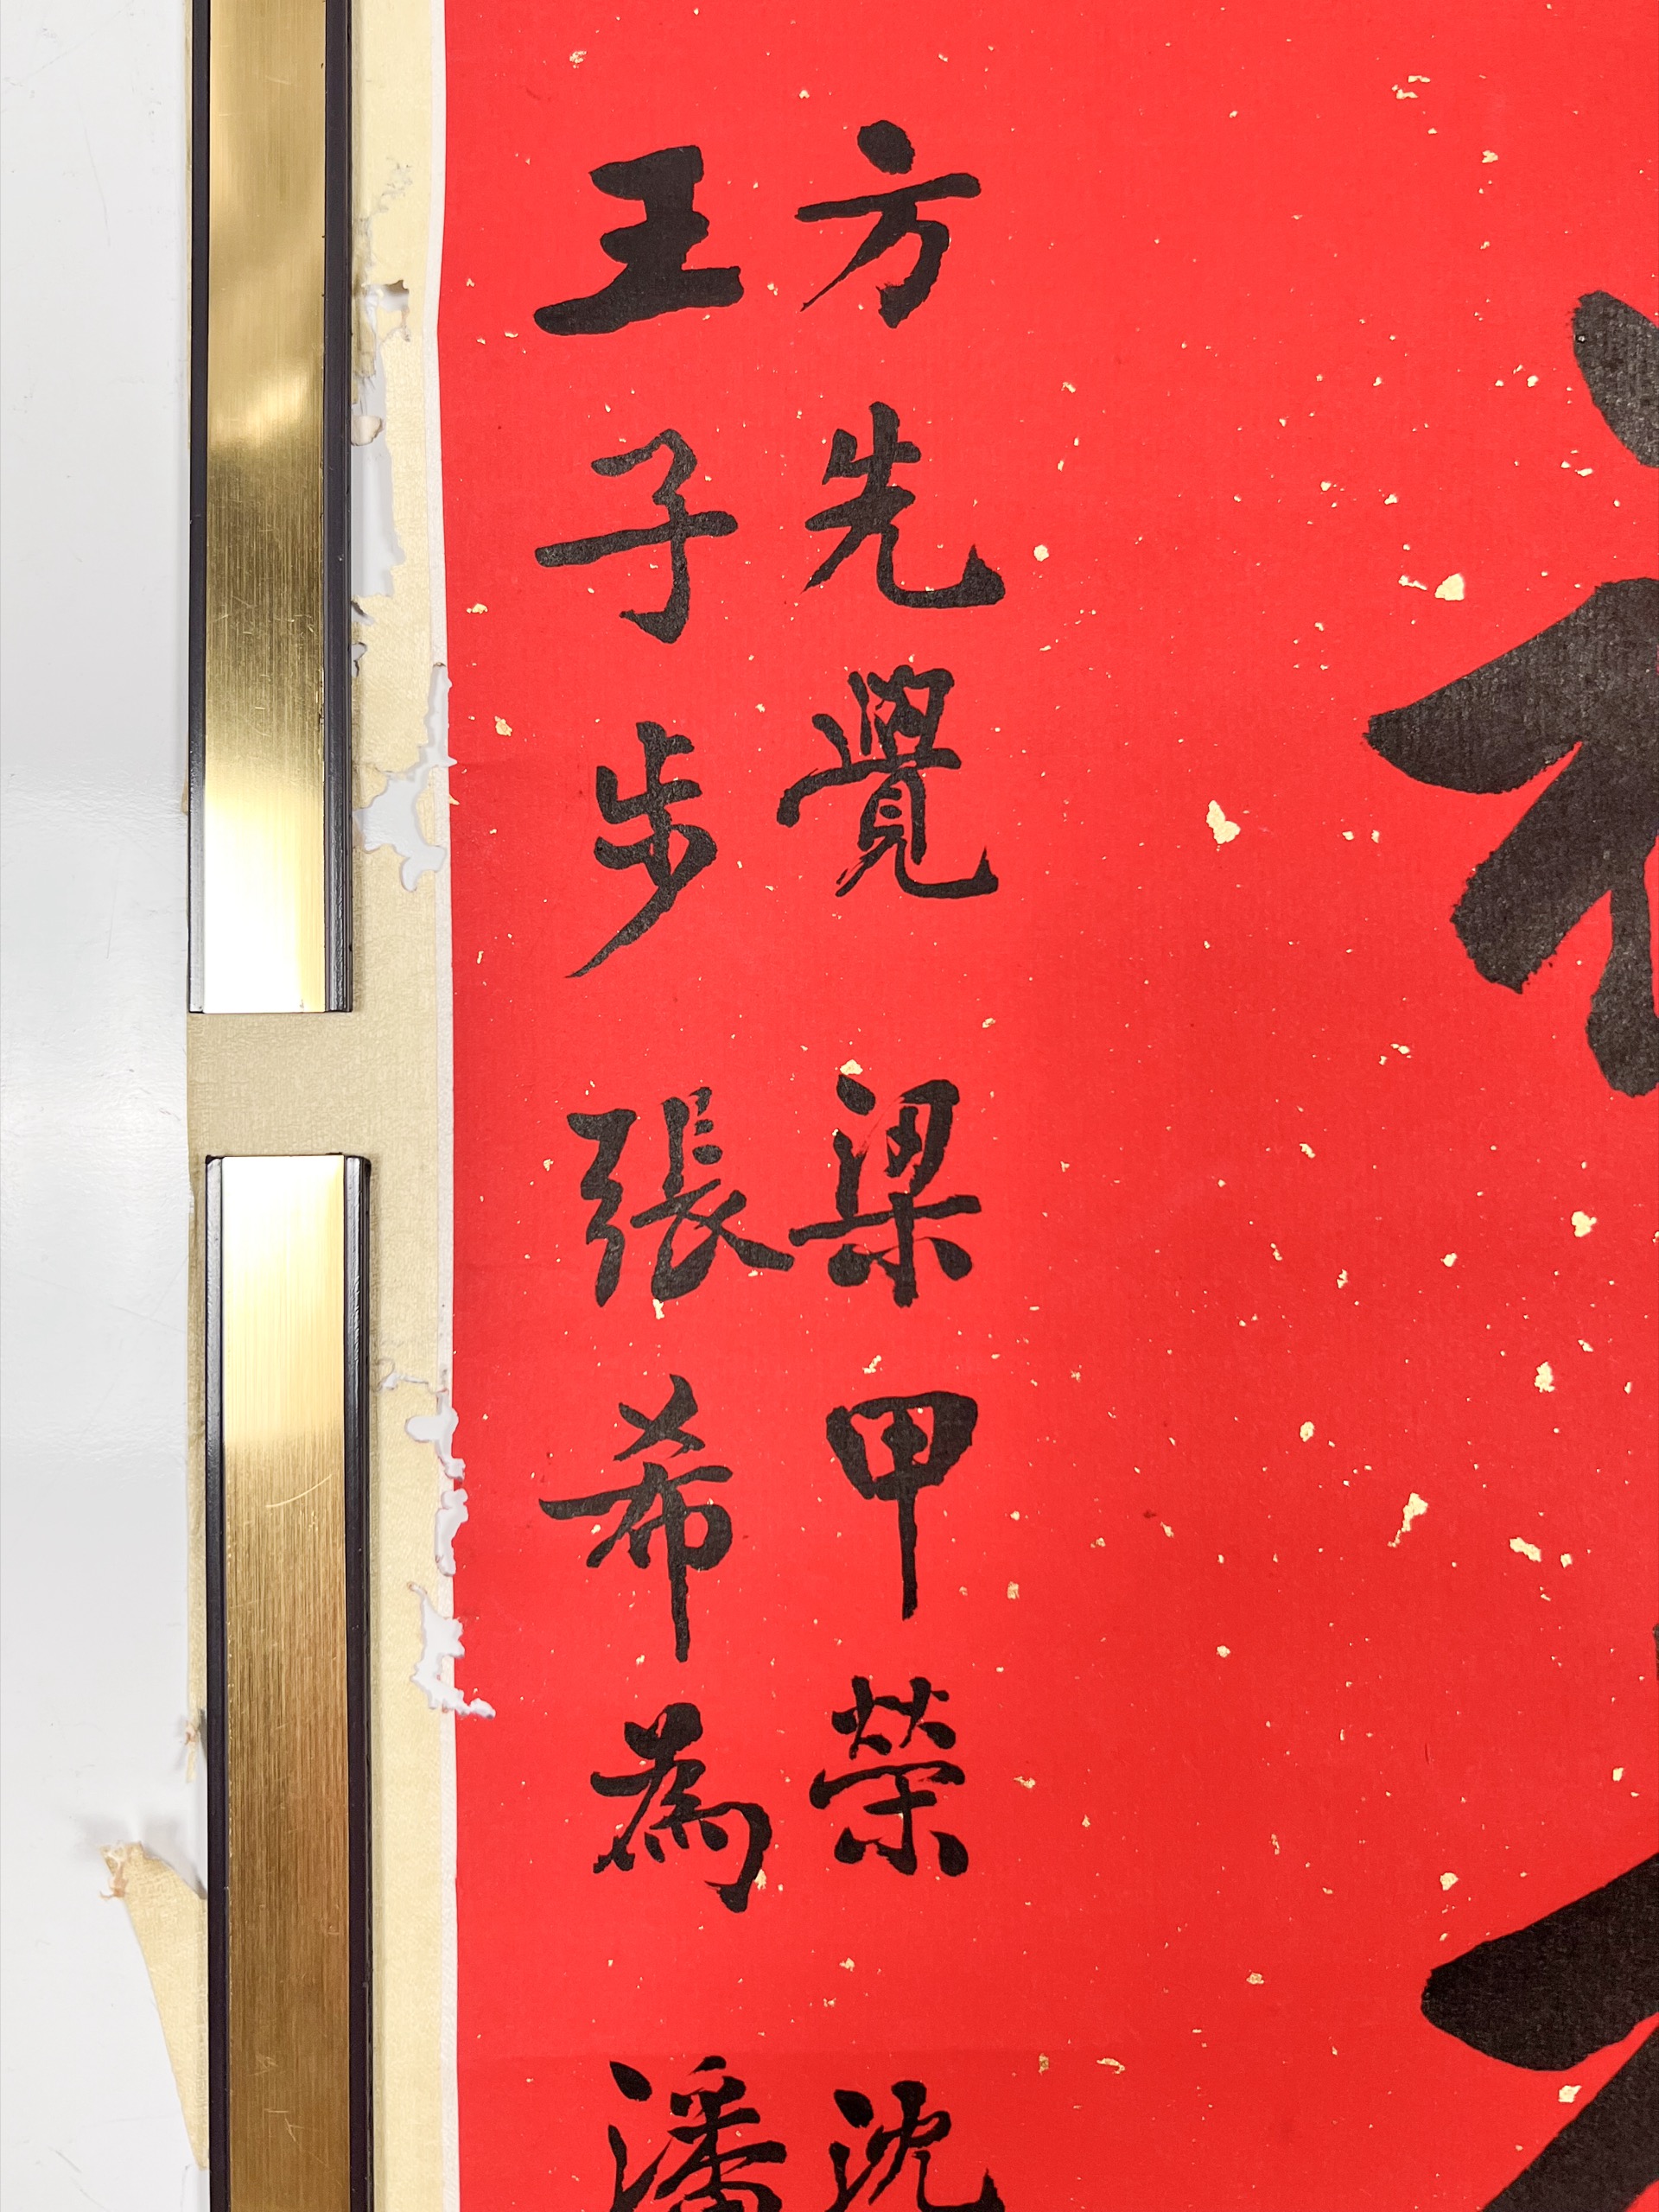 方先覺 梁甲榮 沈
王子步 張希為 潘